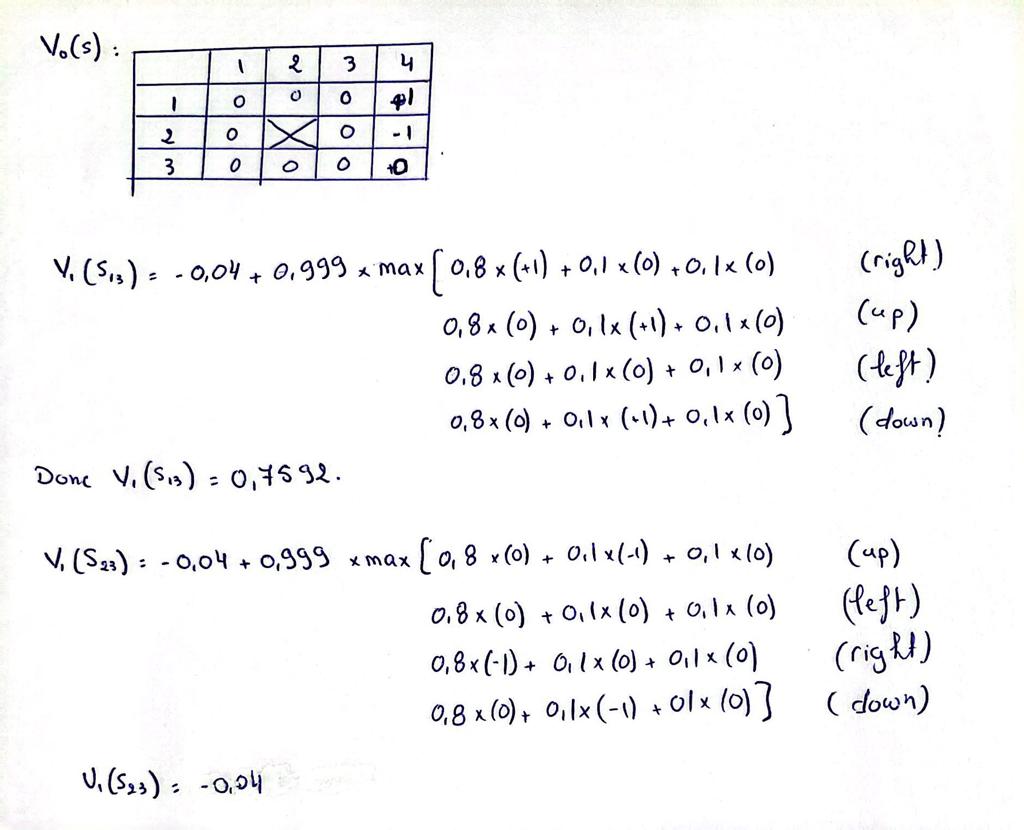 V₀(s) :
1 2 3 4
1 0 0 0 +1
2 0 0 -1
3 0 0 0 +0
V₁(S₁₃) = -0,04 + 0,999 x max [ 0,8 x (+1) + 0,1 x (0) + 0,1x (0) (right)
0,8x (0) + 0,1x (+1) + 0,1x(0) (up)
0,8 x (0) + 0,1 x (0) + 0,1 x (0) (left)
0,8x (0) + 0,1x (+1) + 0,1x (0) ] (down)
Donc V₁(S₁₃) = 0,7592.
V₁(S₂₃) = -0,04 + 0,999 x max [ 0,8 x(0) + 0,1x(-1) + 0,1 x(0) (up)
0,8x (0) + 0,1x(0) + 0,1x (0) (left)
0,8x(-1) + 0,1x (0) + 0,1x (0) (right)
0,8 x (0) + 0,1x (-1) + 01x (0) ] (down)
V₁(S₂₃) = -0,04